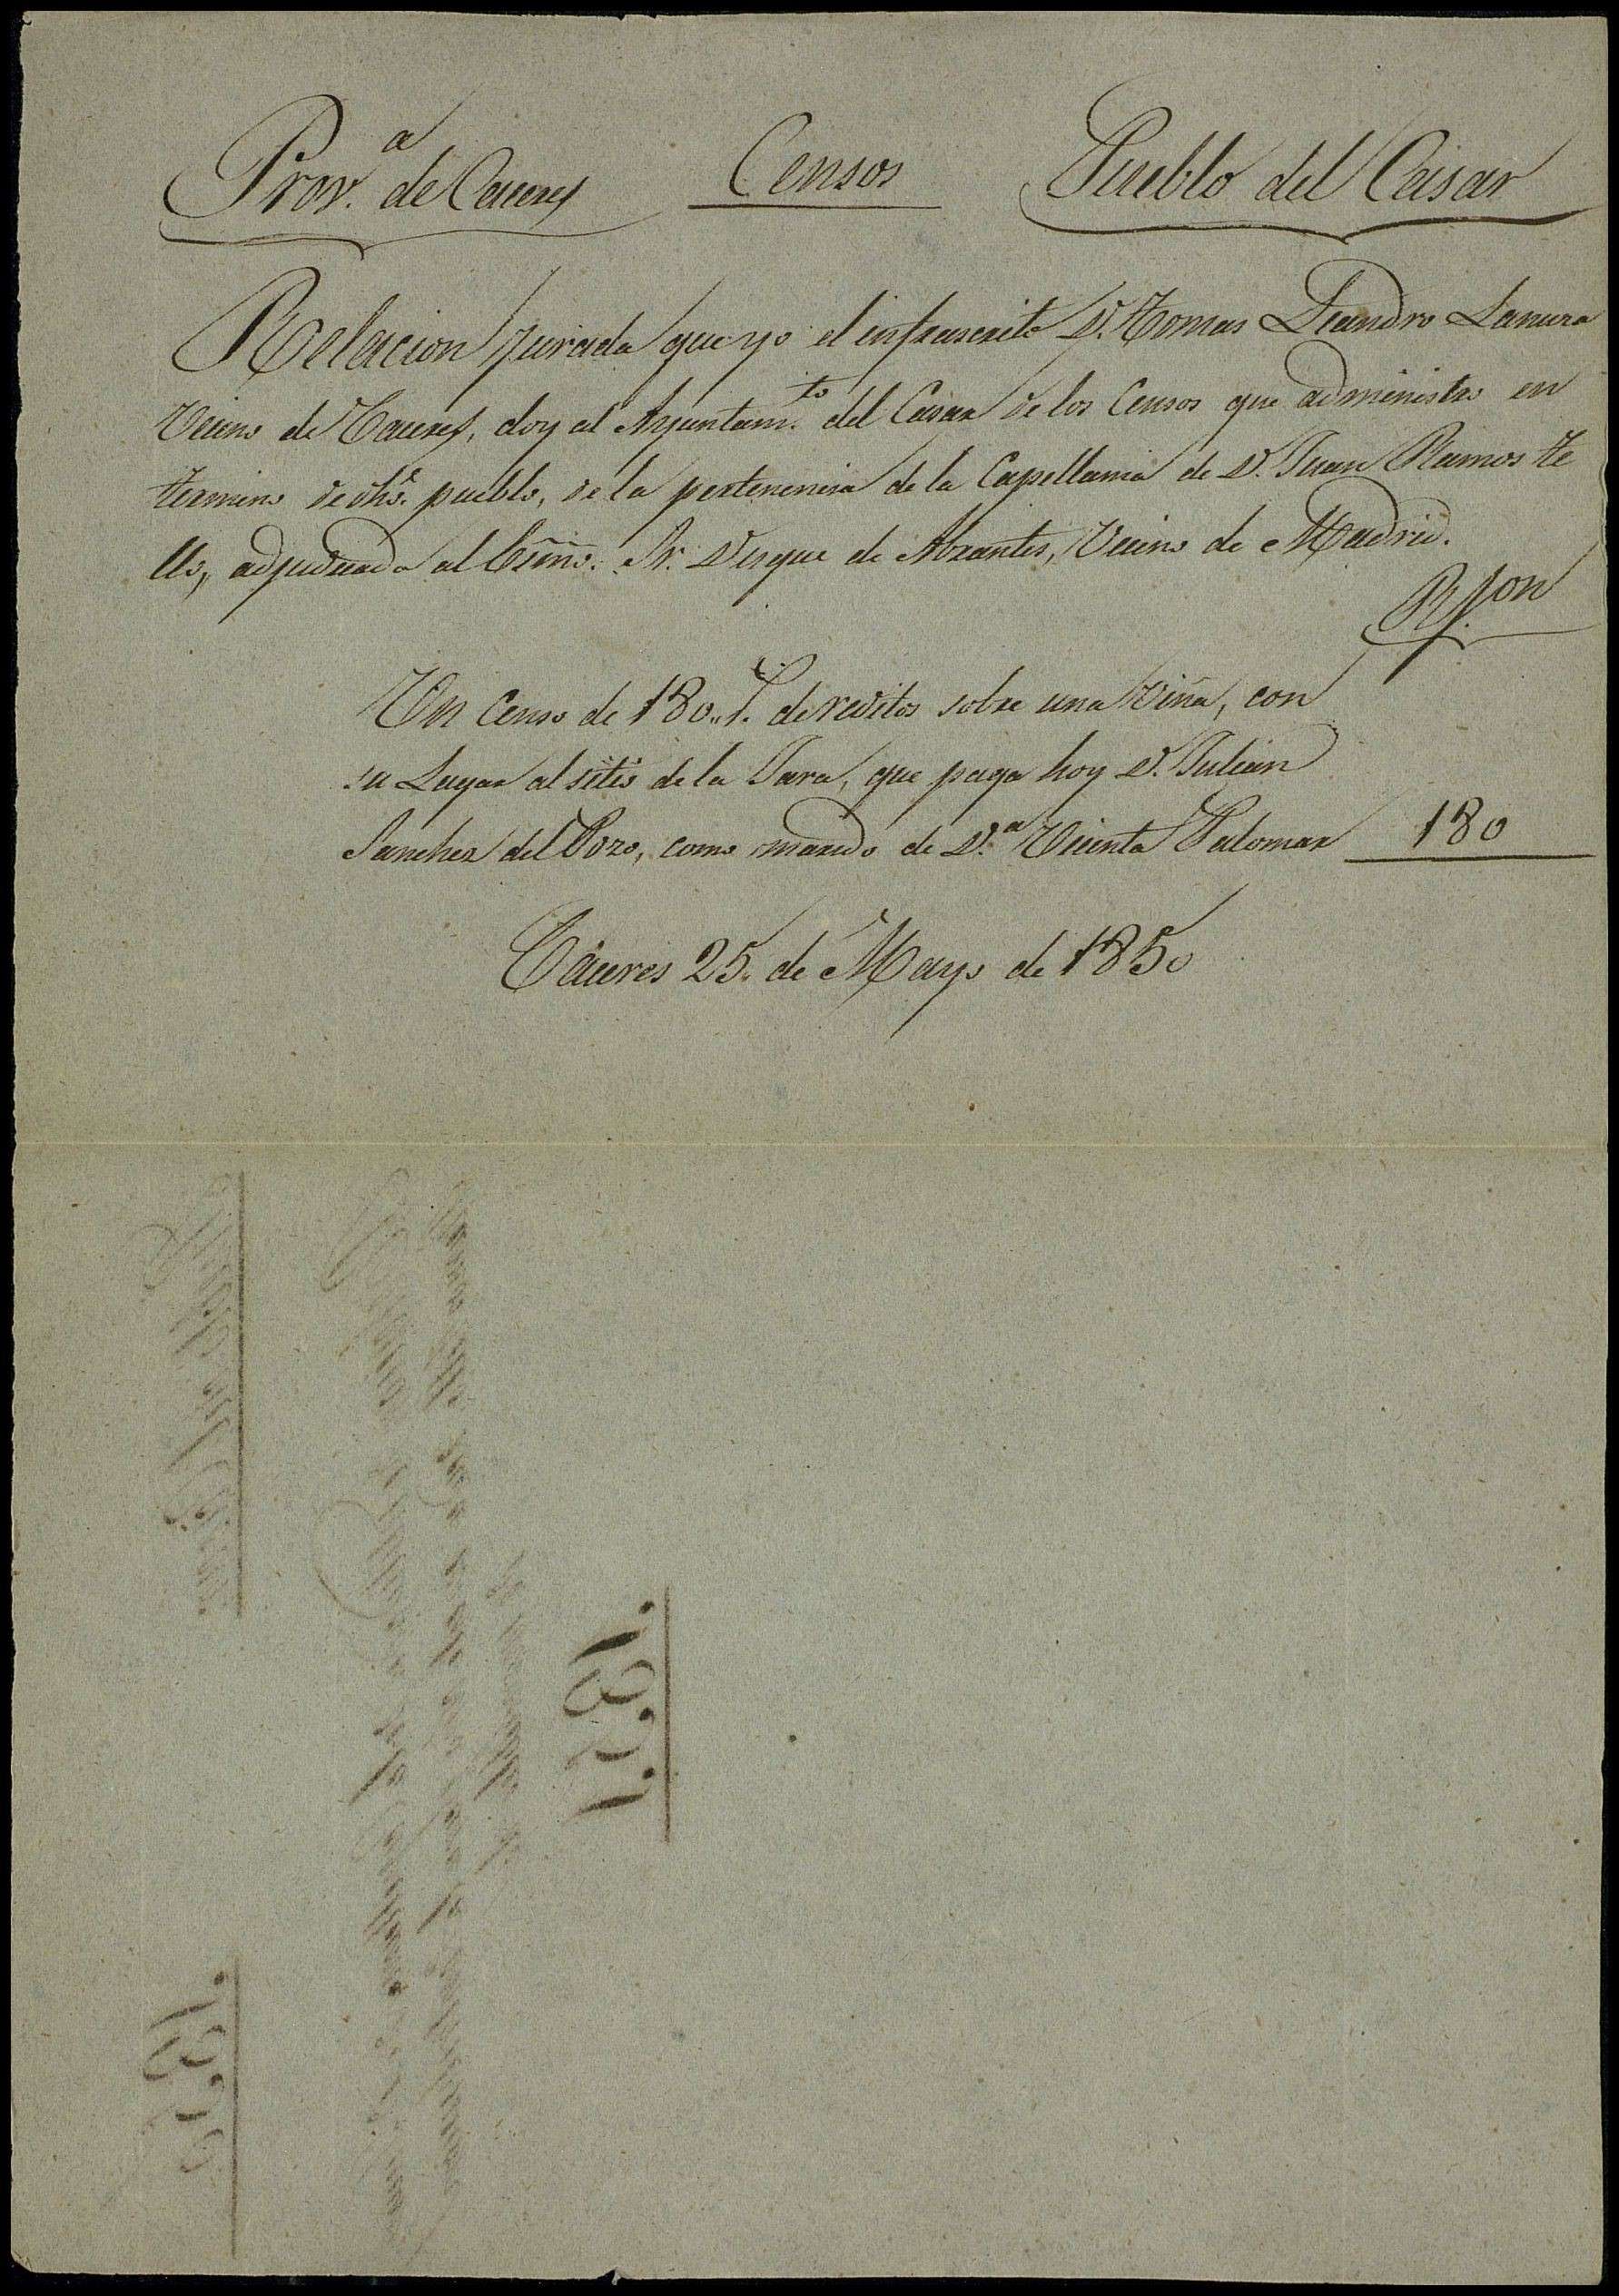 Prov.ª de Caceres Censos Pueblo del Casar
Relacion jurada que yo el infrascrito D. Tomas Leandro Lanura
Vecino de Caceres, doy al Ayuntam.to del Casar de los Censos que administro en
termino de dho. pueblo, de la pertenencia de la Capellania de D. Juan Ramos te
llo, adjudicada al Excmo. Sr. Duque de Abrantes, Vecino de Madrid.
Rs. von
Un Censo de 180 rs. de reditos sobre una viña, con
su Lagar al sitio de la Jara, que paga hoy D. Julian
Sanchez del Pozo, como marido de D.ª Vicenta Palomar 180
Cáceres 25. de Mayo de 1850